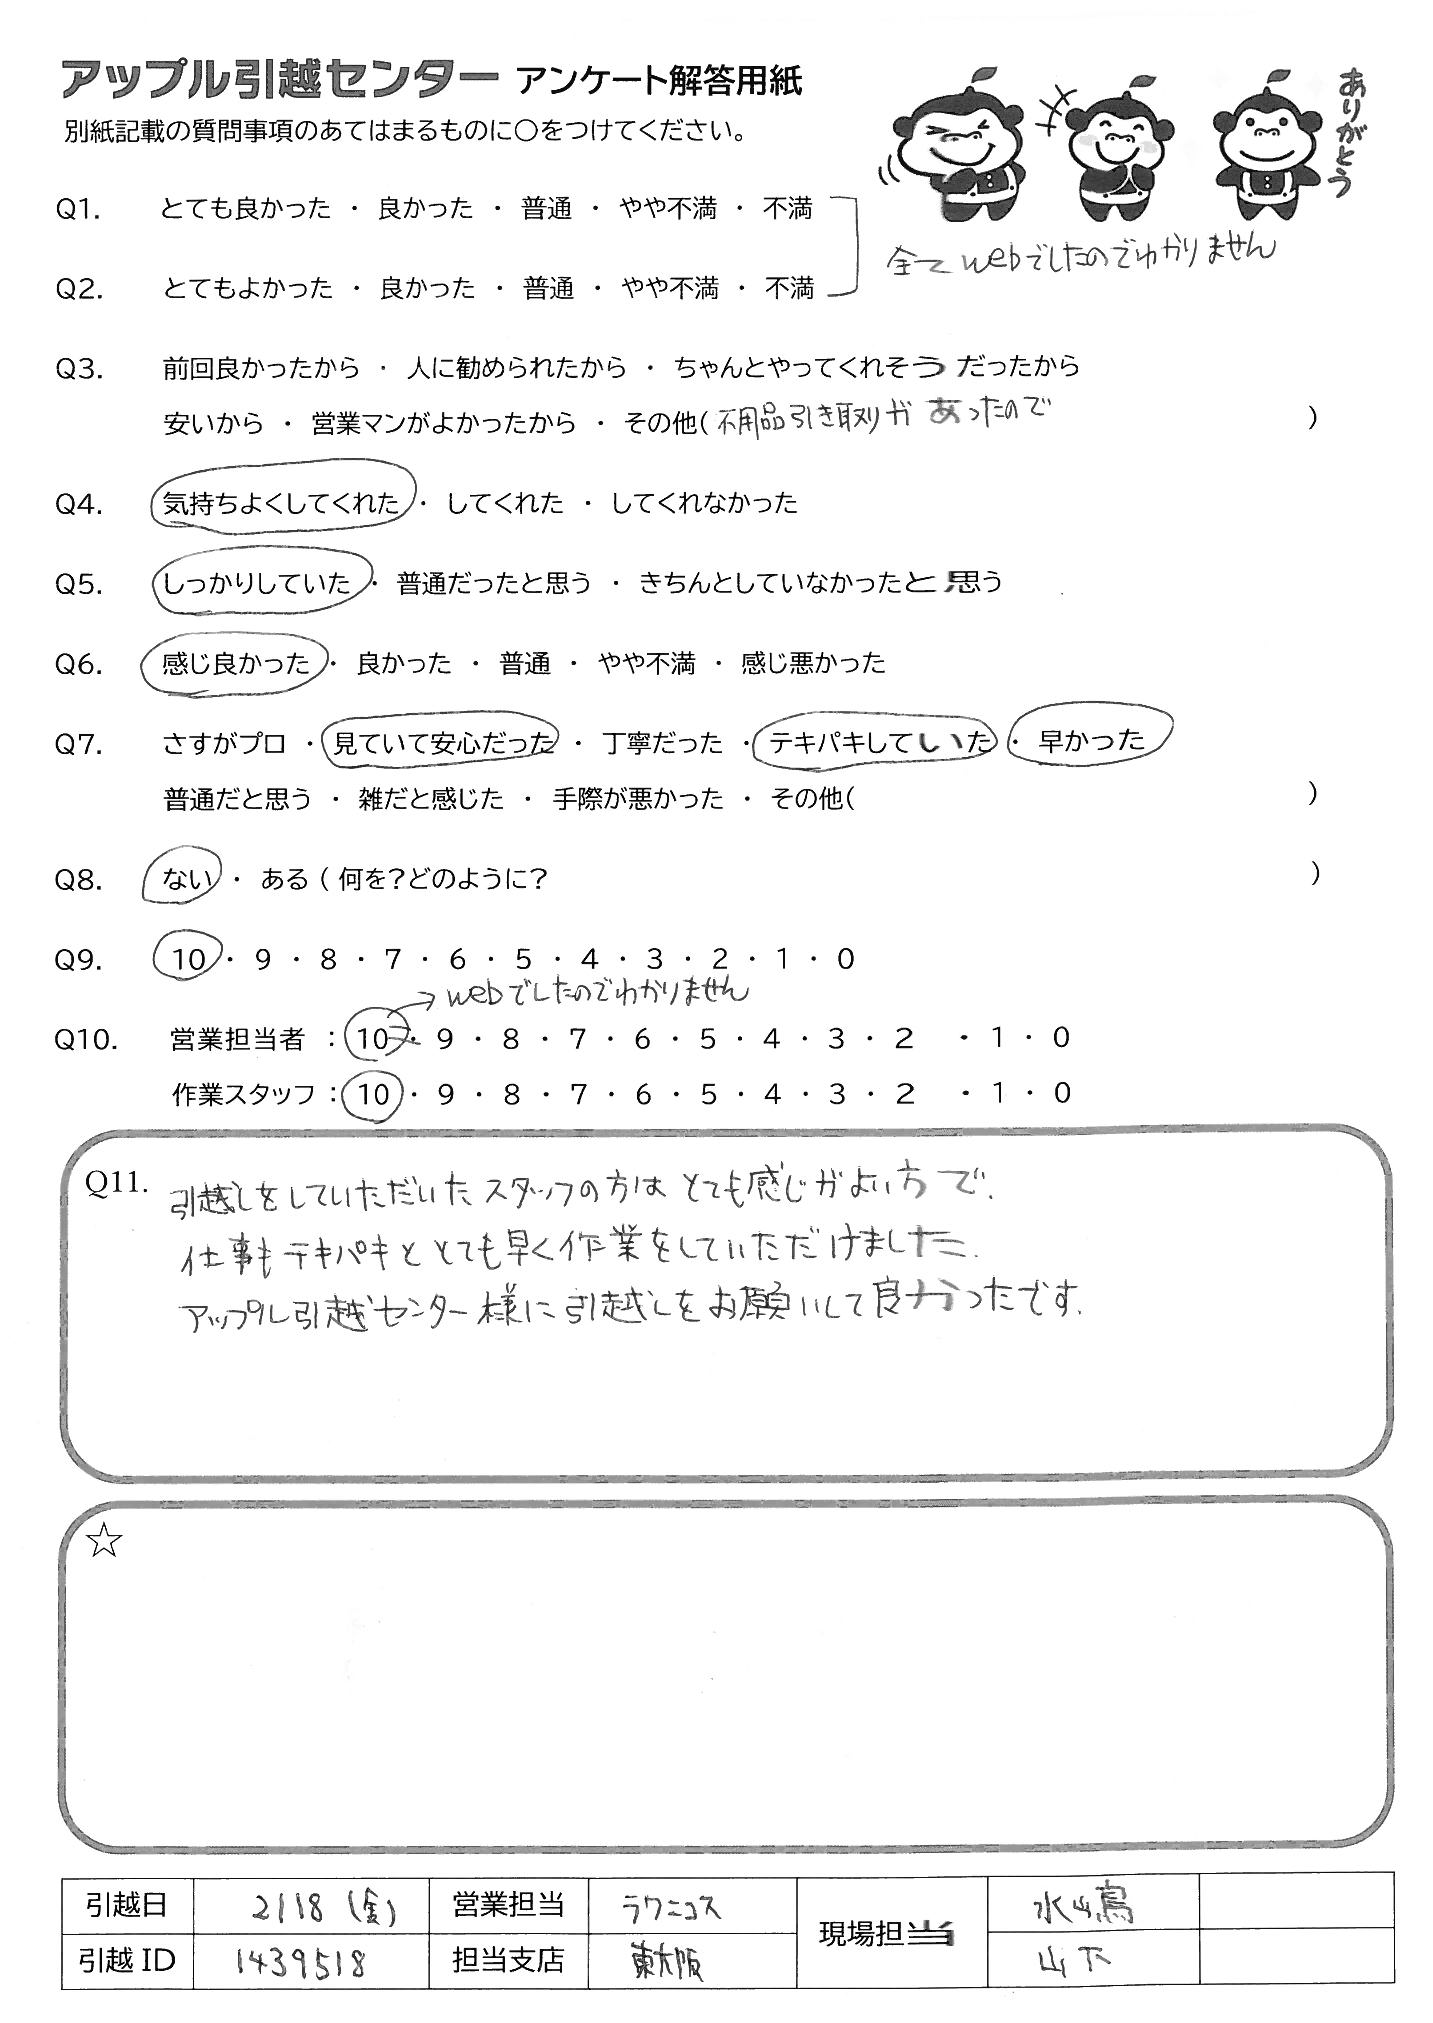 アップル引越センター アンケート解答用紙
ありがとう
別紙記載の質問事項のあてはまるものに○をつけてください。
Q1. とても良かった ・ 良かった ・ 普通 ・ やや不満 ・ 不満
全てwebでしたのでわかりません
Q2. とてもよかった ・ 良かった ・ 普通 ・ やや不満 ・ 不満
Q3. 前回良かったから ・ 人に勧められたから ・ ちゃんとやってくれそうだったから
安いから ・ 営業マンがよかったから ・ その他(不用品引き取りがあったので )
Q4. 気持ちよくしてくれた ・ してくれた ・ してくれなかった
Q5. しっかりしていた ・ 普通だったと思う ・ きちんとしていなかったと思う
Q6. 感じ良かった ・ 良かった ・ 普通 ・ やや不満 ・ 感じ悪かった
Q7. さすがプロ ・ 見ていて安心だった ・ 丁寧だった ・ テキパキしていた ・ 早かった
普通だと思う ・ 雑だと感じた ・ 手際が悪かった ・ その他( )
Q8. ない ・ ある ( 何を?どのように? )
Q9. 10 ・ 9 ・ 8 ・ 7 ・ 6 ・ 5 ・ 4 ・ 3 ・ 2 ・ 1 ・ 0
→ webでしたのでわかりません
Q10. 営業担当者 : 10 ・ 9 ・ 8 ・ 7 ・ 6 ・ 5 ・ 4 ・ 3 ・ 2 ・ 1 ・ 0
作業スタッフ : 10 ・ 9 ・ 8 ・ 7 ・ 6 ・ 5 ・ 4 ・ 3 ・ 2 ・ 1 ・ 0
Q11. 引越しをしていただいたスタッフの方はとても感じがよい方で、
仕事もテキパキととても早く作業をしていただけました。
アップル引越センター様に引越しをお願いして良かったです。
☆
引越日 2/18 (金) 営業担当 ラクニコス 現場担当
引越ID 1439518 担当支店 東大阪 山下